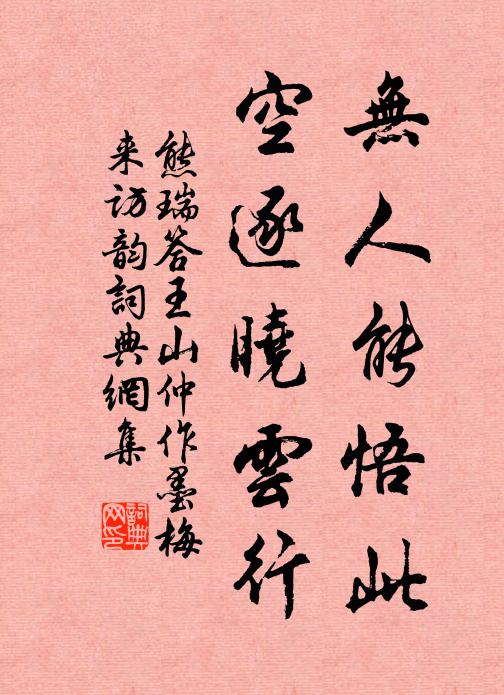 無人能悟此
空逐曉雲行
熊瑞答王山仲作墨梅
来訪韵詞典網集
詞典
网印